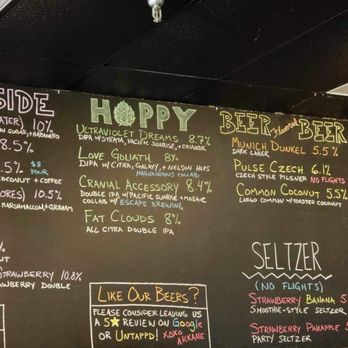 SIDE
10%
+ HABANERO
8.5%
.5% $8 FOUR
COCONUT + COFFEE
10.5%
MARSHMALLOW, + GRAHAM
STRAWBERRY 10.8%
STRAWBERRY DOUBLE
HOPPY
ULTRAVIOLET DREAMS 8.7%
DIPA W/ STRATA, PACIFIC SUNRISE, + CHINOOK
LOVE GOLIATH 8%
DIPA W/ CITRA, GALAXY, + NELSON HOPS
COLLAB
CRANIAL ACCESSORY 8.4%
DOUBLE IPA W/ PACIFIC SUNRISE + MOSAIC
COLLAB W/ ESCAPE BREWING
FAT CLOUDS 8%
ALL CITRA DOUBLE IPA
LIKE OUR BEERS?
PLEASE CONSIDER LEAVING US
A 5★ REVIEW ON GOOGLE
OR UNTAPPD! XOXO
ARKANE
BEER FLAVORED BEER
MUNICH DUNKEL 5.5%
DARK LAGER
PULSE CZECH 6.1%
CZECH STYLE PILSNER NO FLIGHTS
COMMON COCONUT 5.5%
W/ TOASTED COCONUT
SELTZER
(NO FLIGHTS)
STRAWBERRY BANANA 5
SMOOTHIE-STYLE SELTZER
STRAWBERRY PINEAPPLE 5
PARTY SELTZER